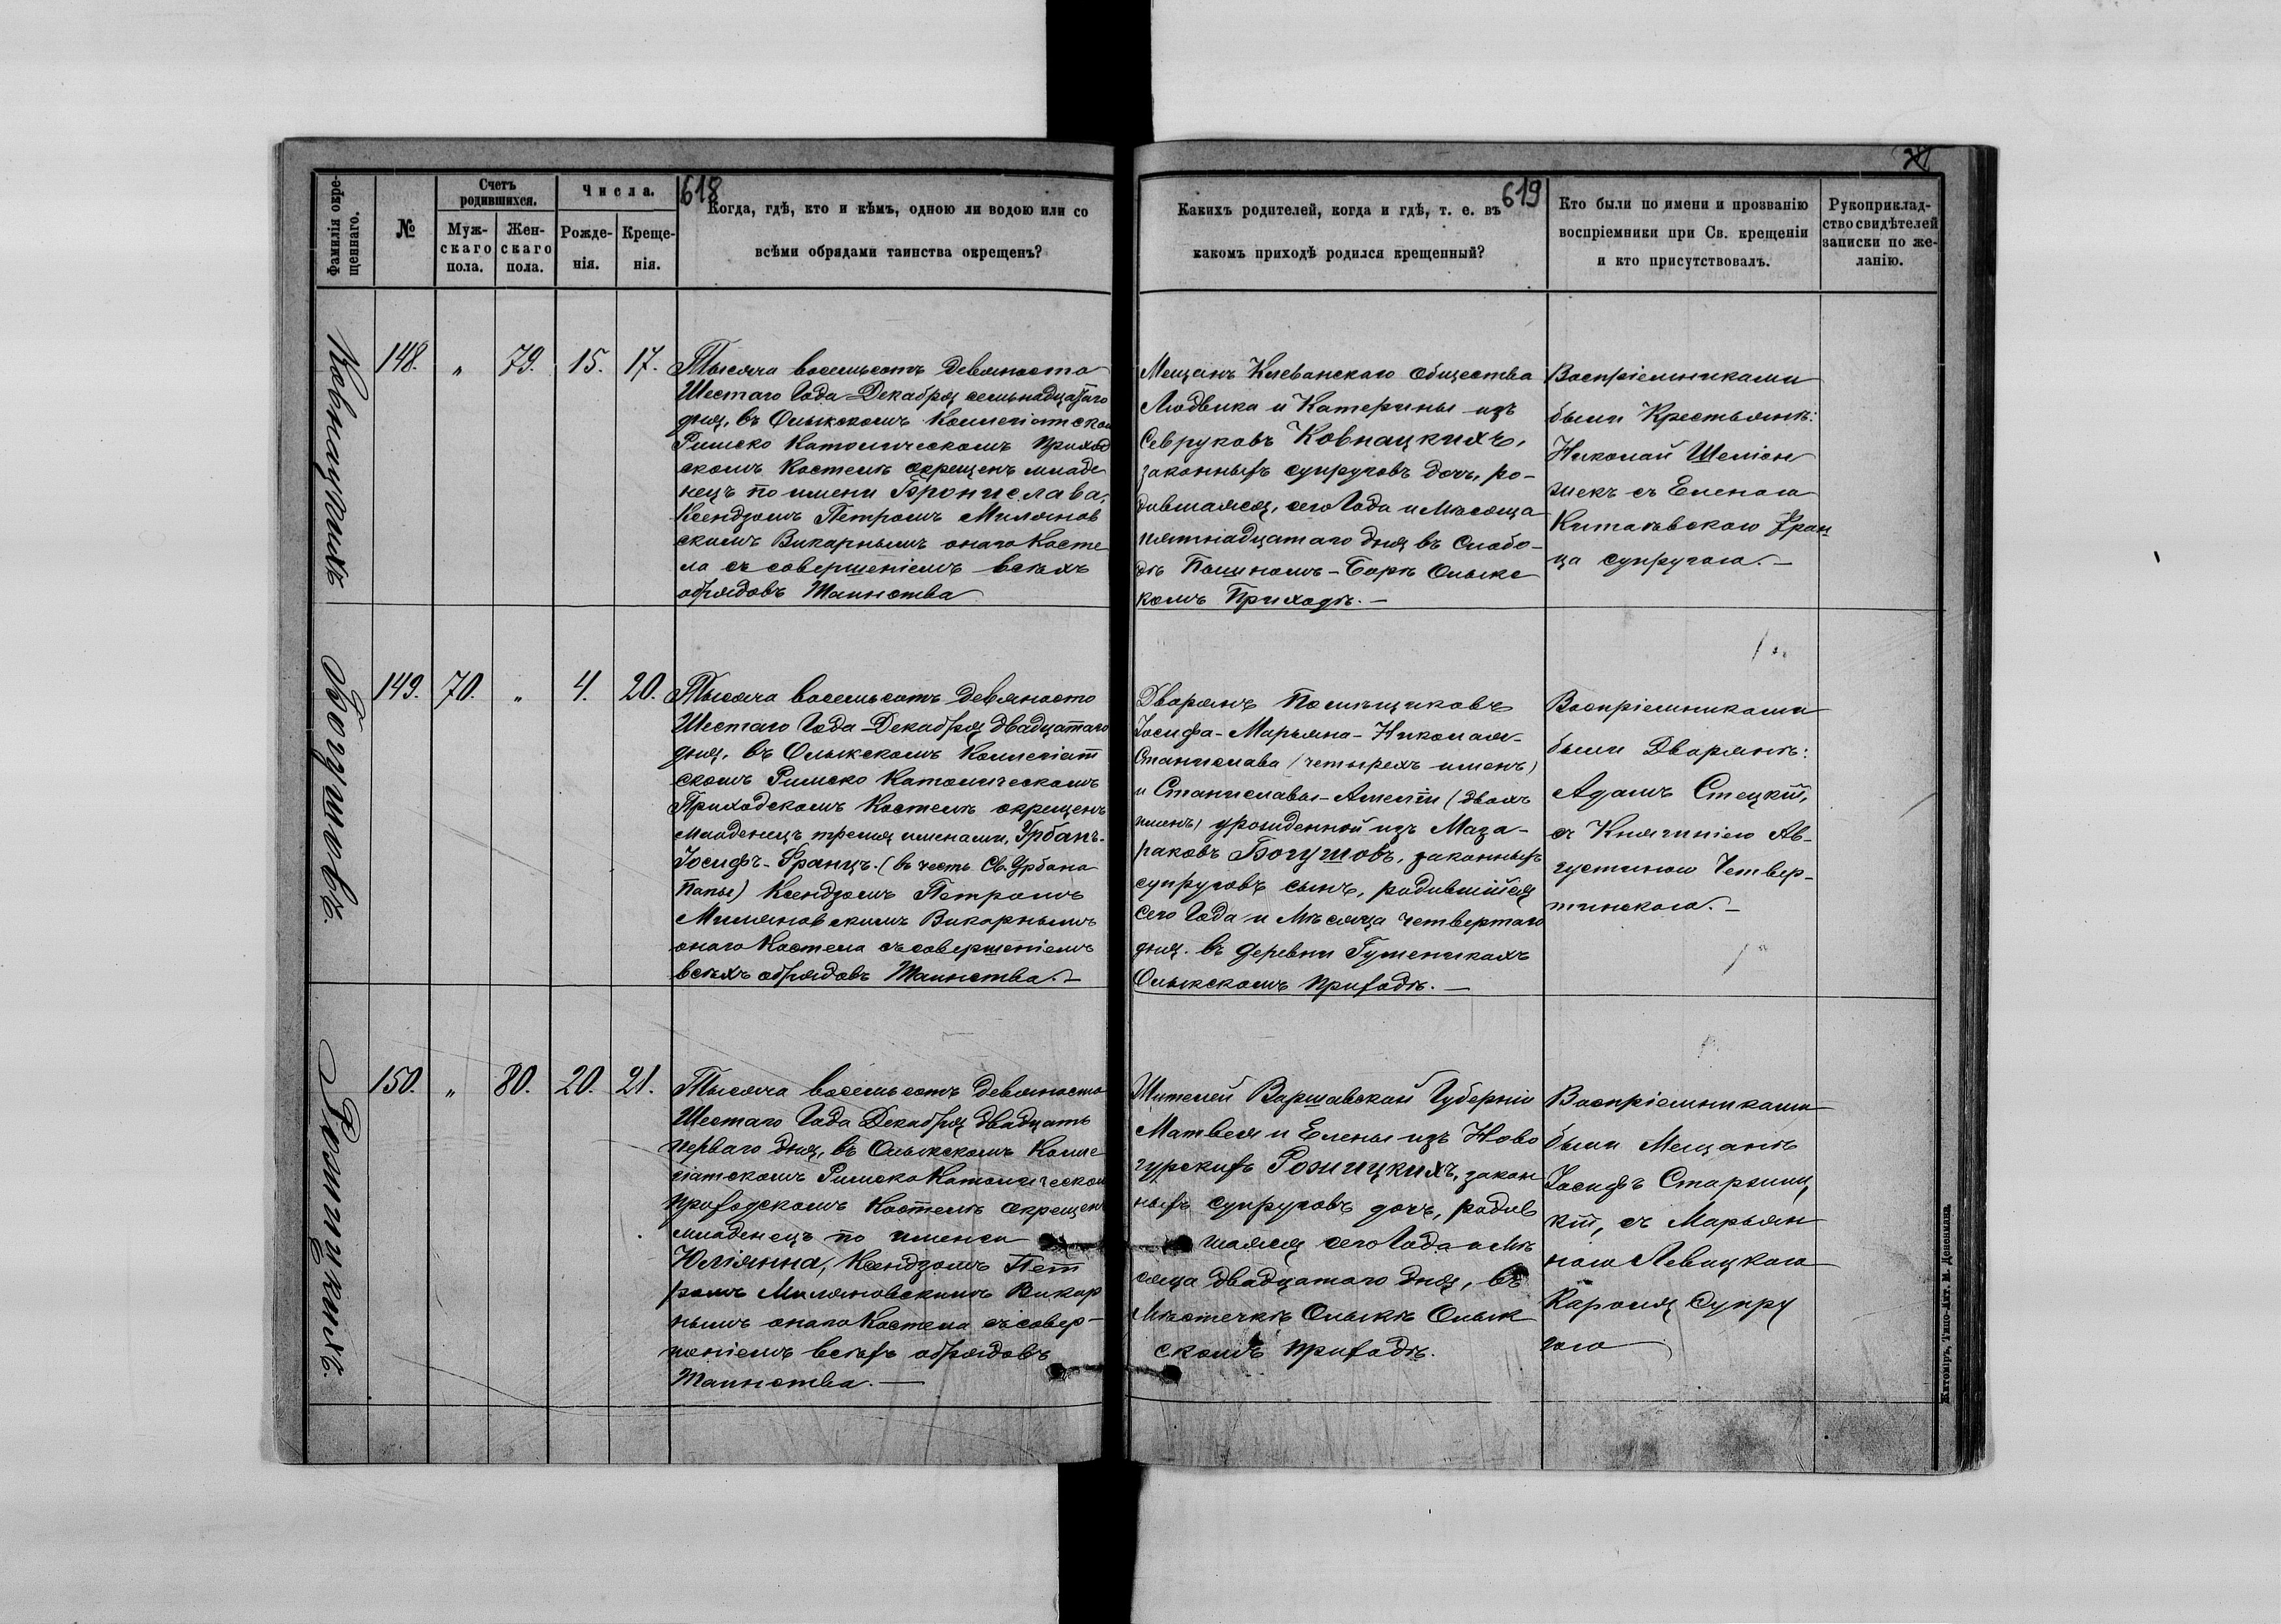 618
619
Фамилія окре-
щеннаго.
№
Счетъ
родившихся.
Муж-
скаго
пола.
Жен-
скаго
пола.
Числа.
Рожде-
нія.
Креще-
нія.
Когда, гдѣ, кто и кѣмъ, одною ли водою или со
всѣми обрядами таинства окрещенъ?
Какихъ родителей, когда и гдѣ, т. е. въ
какомъ приходѣ родился крещенный?
Кто были по имени и прозванію
воспріемники при Св. крещеніи
и кто присутствовалъ.
Рукоприклад-
ство свидѣтелей
записки по же-
ланію.
Ковнацкихъ
148. „ 79. 15. 17.
Тысяча восемьсотъ девяноста
Шестаго Года Декабря семьнадцатаго
дня, въ Олыкскомъ Коллегіатском
Римско Католическомъ Приход
скомъ Костелѣ окрещенъ младе
нецъ по имени Бронислава,
Ксендзомъ Петромъ Милянов
скимъ Викарнымъ онаго Косте
ла съ совершеніемъ всѣхъ
обрядовъ Таинства
Мещанъ Клеванскаго общества
Людвика и Катерины изъ
Севруковъ Ковнацкихъ,
законныхъ супруговъ дочь, ро-
дившаяся, сего Года и Мѣсяца
пятнадцатаго дня въ Слобо-
дѣ Бор­ѣ Олыкс
комъ Приходѣ. —
Воспріемниками
были Крестьянѣ:
Николай
съ Еленою
Франц
ца супругою. —
Богушовъ.
149. 70. „ 4. 20.
Тысяча восемьсотъ девяносто
Шестаго Года Декабря двадцатаго
дня, въ Олыкскомъ Коллегіат
скомъ Римско Католическомъ
Приходскомъ Костелѣ окрещенъ
младенецъ тремя именами, Урбанъ-
Іосифъ-Францъ. (въ честь Св. Урбана
Папы) Ксендзомъ Петромъ
Миляновскимъ Викарнымъ
онаго Костела съ совершеніемъ
всѣхъ обрядовъ Таинства. —
Дворянъ Помѣщиковъ
Іосифа-Марьяна-Николая-
Станислава (четырехъ именъ)
и Станиславы-Амеліи (двохъ
именъ) урожденной изъ Маза-
раковъ Богушовъ, законныхъ
супруговъ сынъ, родившійся
сего Года и Мѣсяца четвертаго
дня. въ деревни Гуменикахъ
Олыкскомъ приходѣ. —
Воспріемниками
были Дворянѣ:
Адамъ Стецкій,
съ Княгинію Ав-
густиною Четвер-
тинскою. —
150. „ 80. 20. 21.
Тысяча восемьсотъ девяноста
Шестаго Года Декабря двадцать
перваго дня, въ Олыкскомъ Колле
гіатскомъ Римско Католическом
приходскомъ Костелѣ окрещенъ
младенецъ по имени
Юліянна, Ксендзомъ Пет
ромъ Миляновскимъ Викар
нымъ онаго Костела съ совер-
шеніемъ всѣхъ обрядовъ
Таинства. —
Жителей Варшавской Губерніи
Матвея и Елены изъ Ново
гурскихъ закон
ныхъ супруговъ дочь, родив
шаяся сего Года и Мѣ
сяца двадцатаго дня, въ
Мѣстечкѣ Олыкѣ Олык
скомъ приходѣ.
Воспріемниками
были Мещанѣ
Іосифъ
кій, съ Марьян
ною Левицкою
Кароля Супру
гою
Житоміръ, Типо-Лит. М. Дененмана.